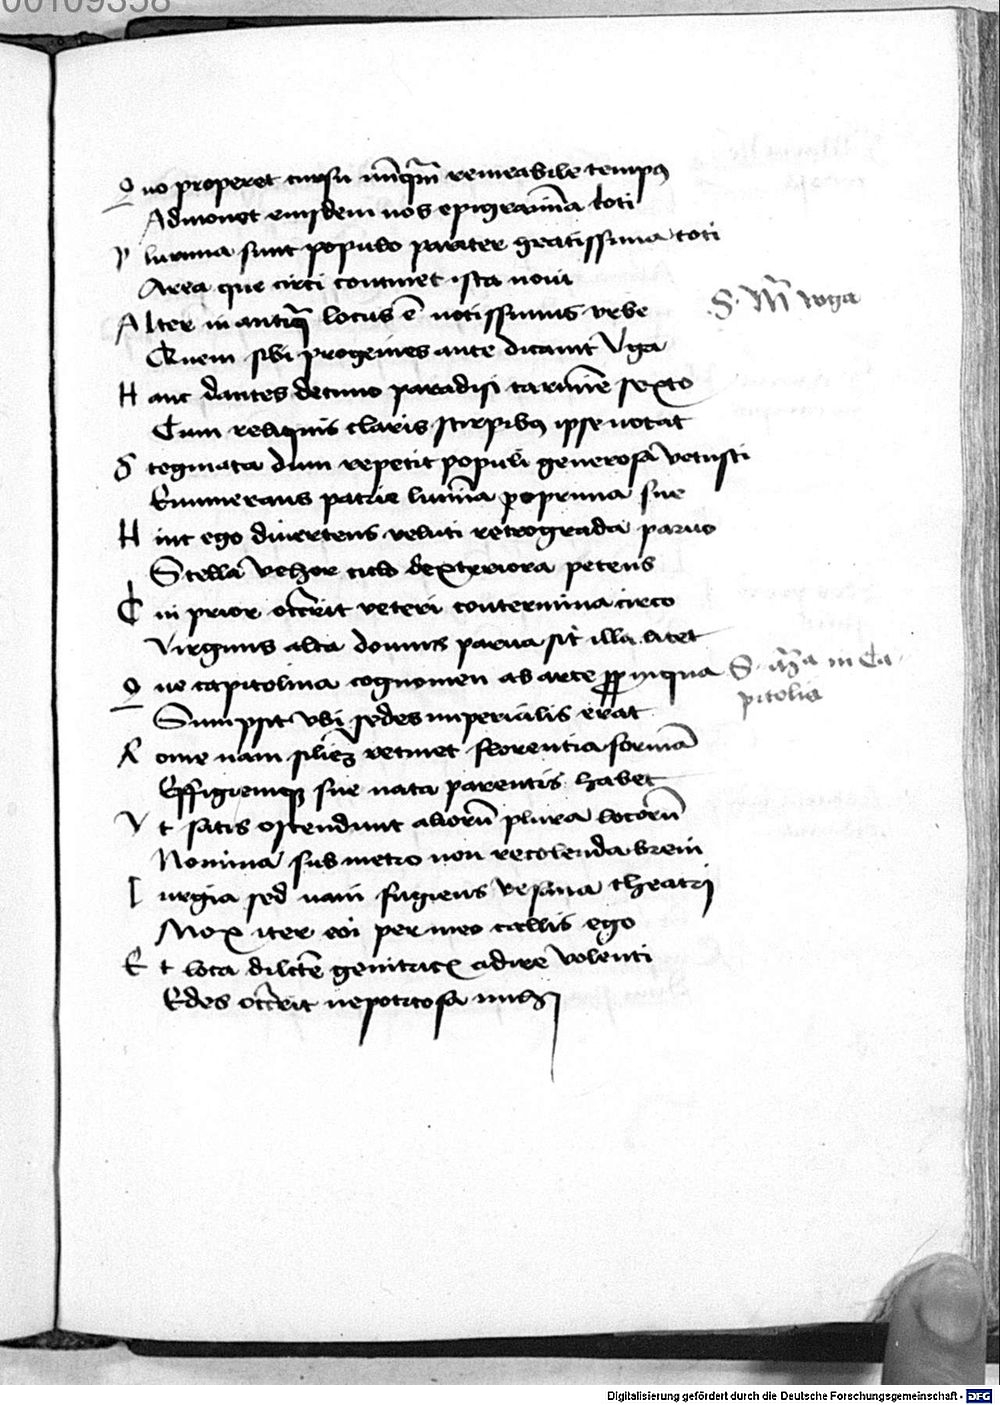 00109358
Quo properet cursu nūqꝫ̄ remeabile tempus
Admonet eiusdem nos epigrāma loti
Plurima sunt populo pariter gratissima toti
Area que circi continet ista noui
Alter in antiq̄ locus ē notissimus vrbe
Quem sibi progenies ante dicauit Vga
S. Mr̄ vga
Hanc dantes decimo paradisi carmīe sexto
Cum reliquis claris stirpibꝫ ipse notat
Stegmata dum repetit populi generosā vetusti
Enumerans patrie lumīa propria sue
Hinc ego diuertens veluti retrograda paruo
Stella vehor ciclo dexteriora petens
Cui prior occ̄rit veteri contermina circo
Virginis alta domus parua sit illa licet
Que capitolina cognomen ab arce ꝓpinqua
S. mr̄a in Ca-
pitolio
Sumpsit vbi sedes imperialis erat
Rome nam silīeꝫ retinet florentia formā
Effigiemqꝫ sue nata parentis habet
Vt satis ostendunt aliorū plura locorū
Nomina sub metro non recolenda breui
Iurgia sed nam fugiens vesana theatri
Mox iter eoi per meo callis ego
Et loca dilctē genitricꝭ adire volenti
Edes occ̄rit nepotcosa michi
Digitalisierung gefördert durch die Deutsche Forschungsgemeinschaft - DFG